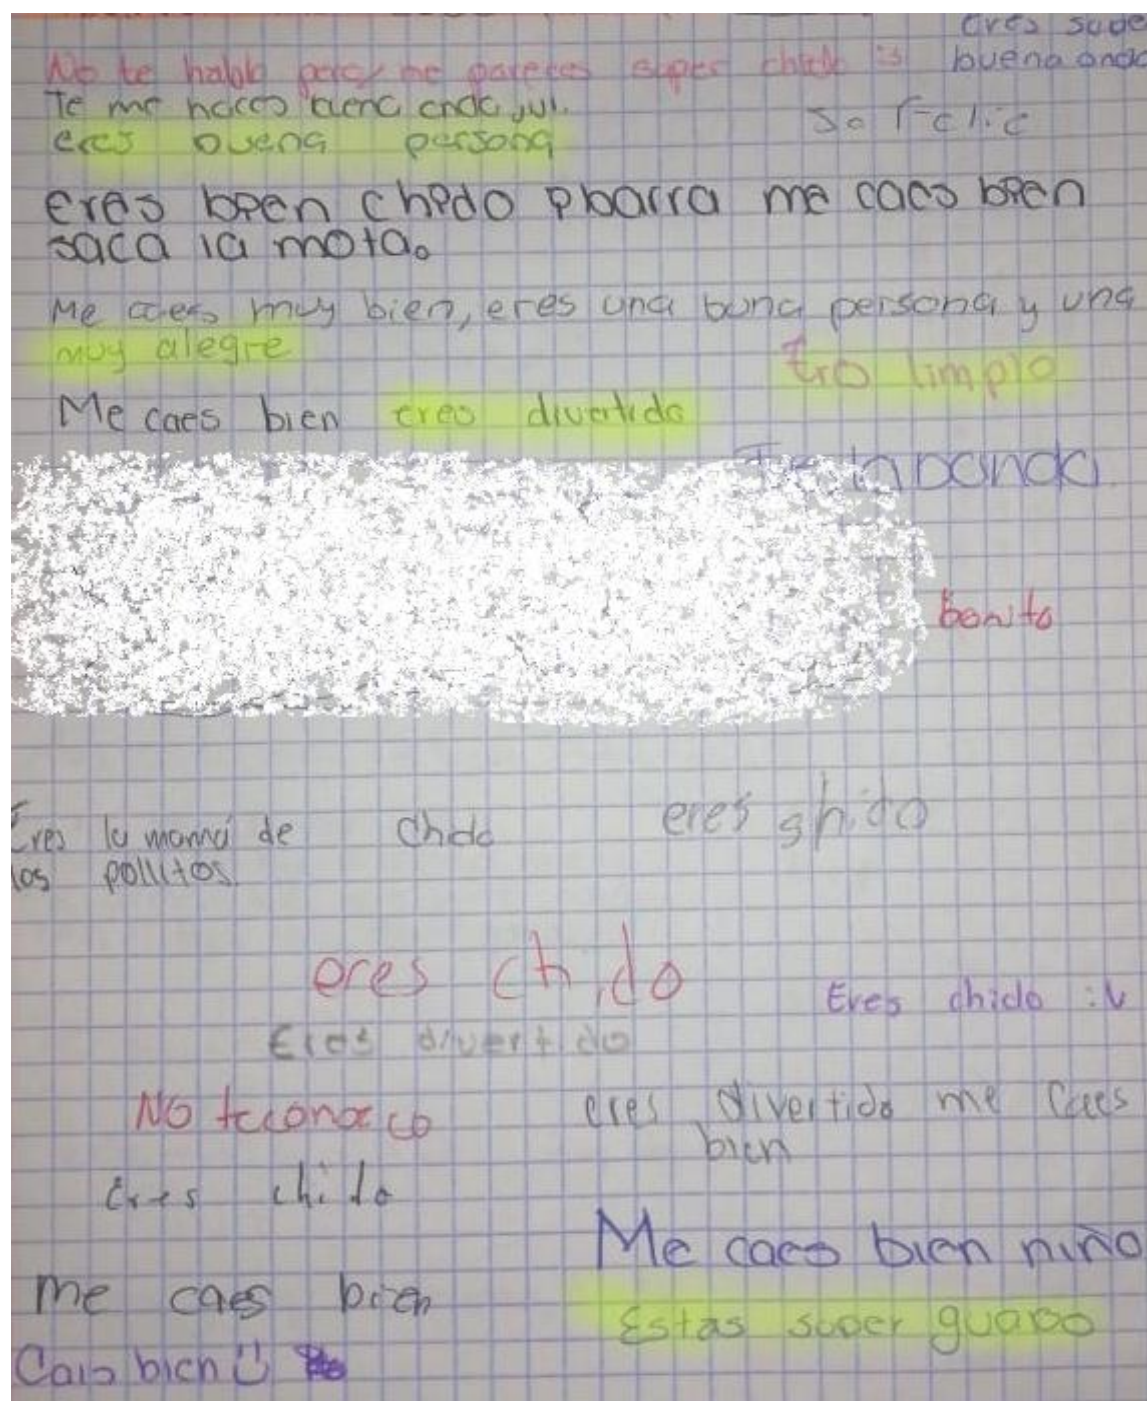 eres supe
buena onda
No te hablo pero me pareces super chido :)
Te me haces buena onda
eres buena persona
eres bien chido Ibarra me caes bien
saca la mota.
Me caes muy bien, eres una buna persona y una
muy alegre
Ero limpio
Me caes bien eres divertido
la banda
bonito
Eres la mamá de
los pollitos.
Chido
eres shido
eres chido
Eres chido :v
Eres divertido
No te conozco
eres divertido me caes
bien
Eres chido
Me caes bien niño
me caes bien
Estas super guapo
Cais bien